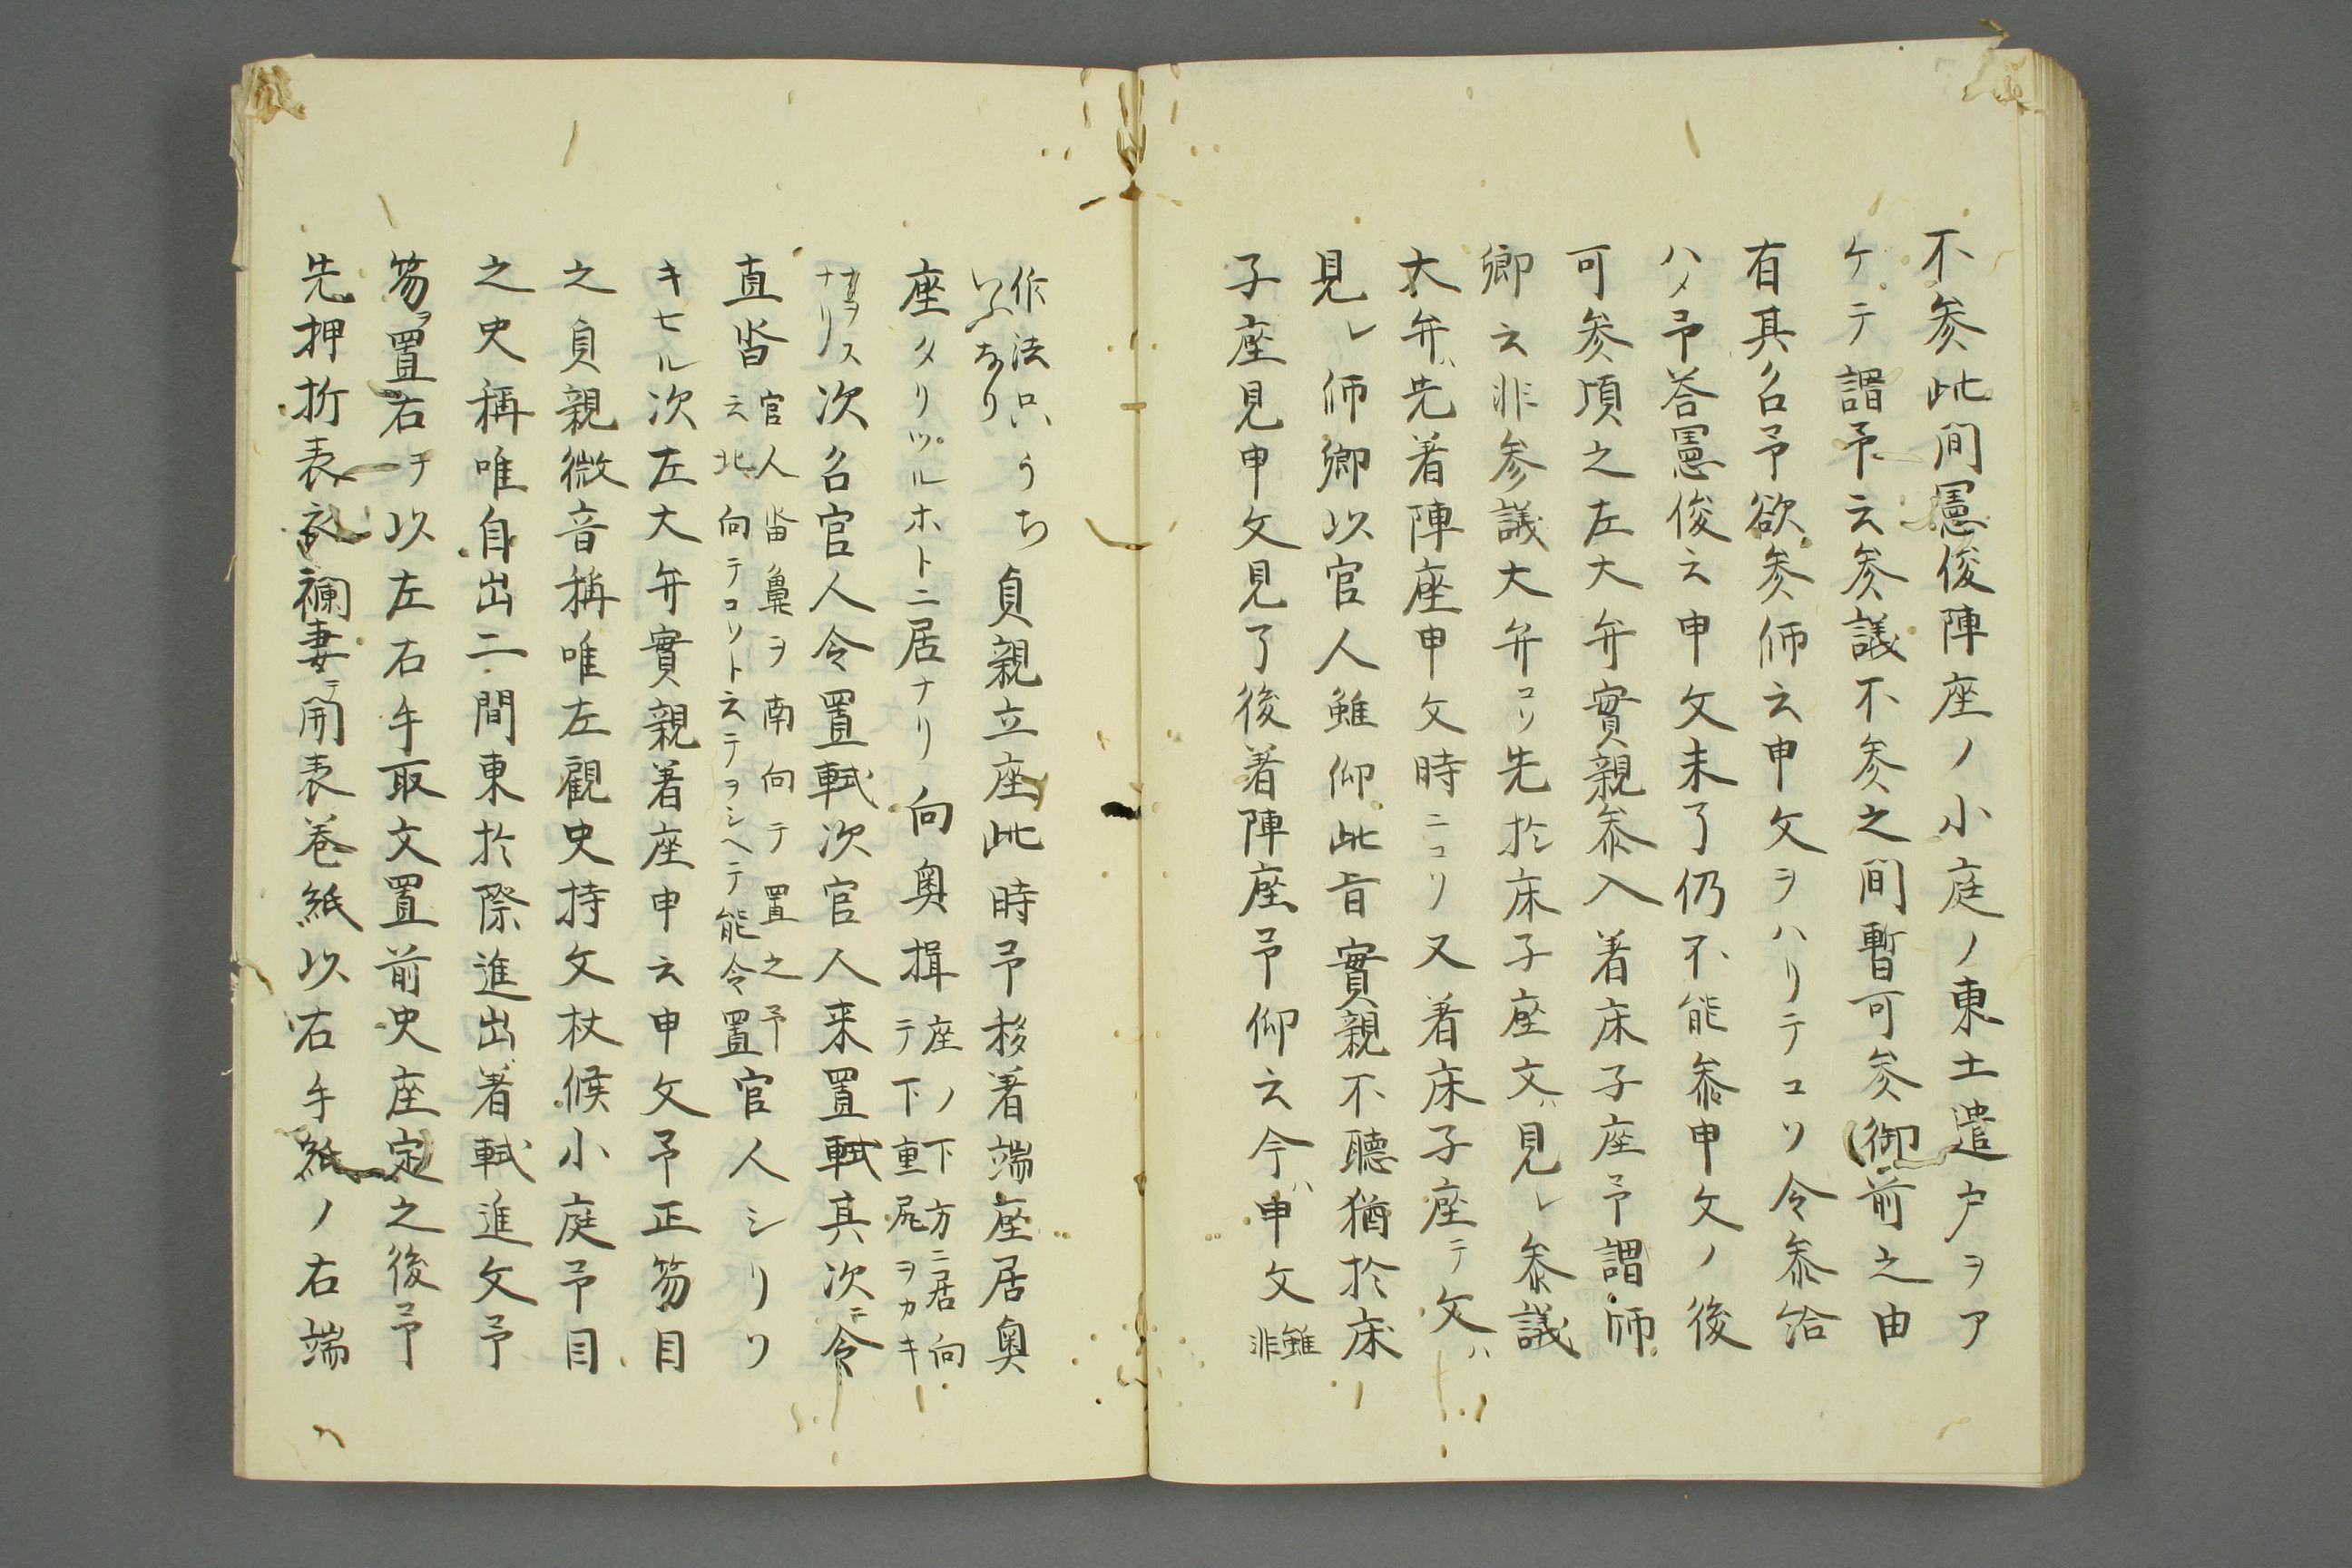 不参此間憲俊陣座ノ小庭ノ東土遣戸ヲア
ケテ謂予云参議不参之間暫可参御前之由
有其召予欲参師云申文ヲハリテコソ令参給
ハメ予答憲俊云申文未了仍不能参申文ノ後
可参頃之左大弁實親参入着床子座予謂師
卿云非参議大弁コソ先於床子座文ハ見レ参議
大弁ハ先着陣座申文時ニコソ又着床子座テ文ハ
見レ師卿以官人雖仰此旨實親不聴猶於床
子座見申文見了後着陣座予仰云今ハ申文雖
非
作法只うち
いふなり
貞親立座此時予移着端座居奥
座タリツルホトニ居ナリ向奥揖座ノ下方ニ居向
テ下重尻ヲカキ
ナリ次召官人令置軾次官人来置軾其次ニ令
直沓官人沓鼻ヲ南向テ置之予
云北向テコソト云テヲシヘテ能令置官人シリソ
キセル次左大弁實親着座申云申文予正笏目
之貞親微音称唯左観史持文杖候小庭予目
之史称唯自出二間東於際進出着軾進文予
笏ヲ置右チ以左右手取文置前史座定之後予
先押折表紙襴妻テ開表巻紙以右手紙ノ右端